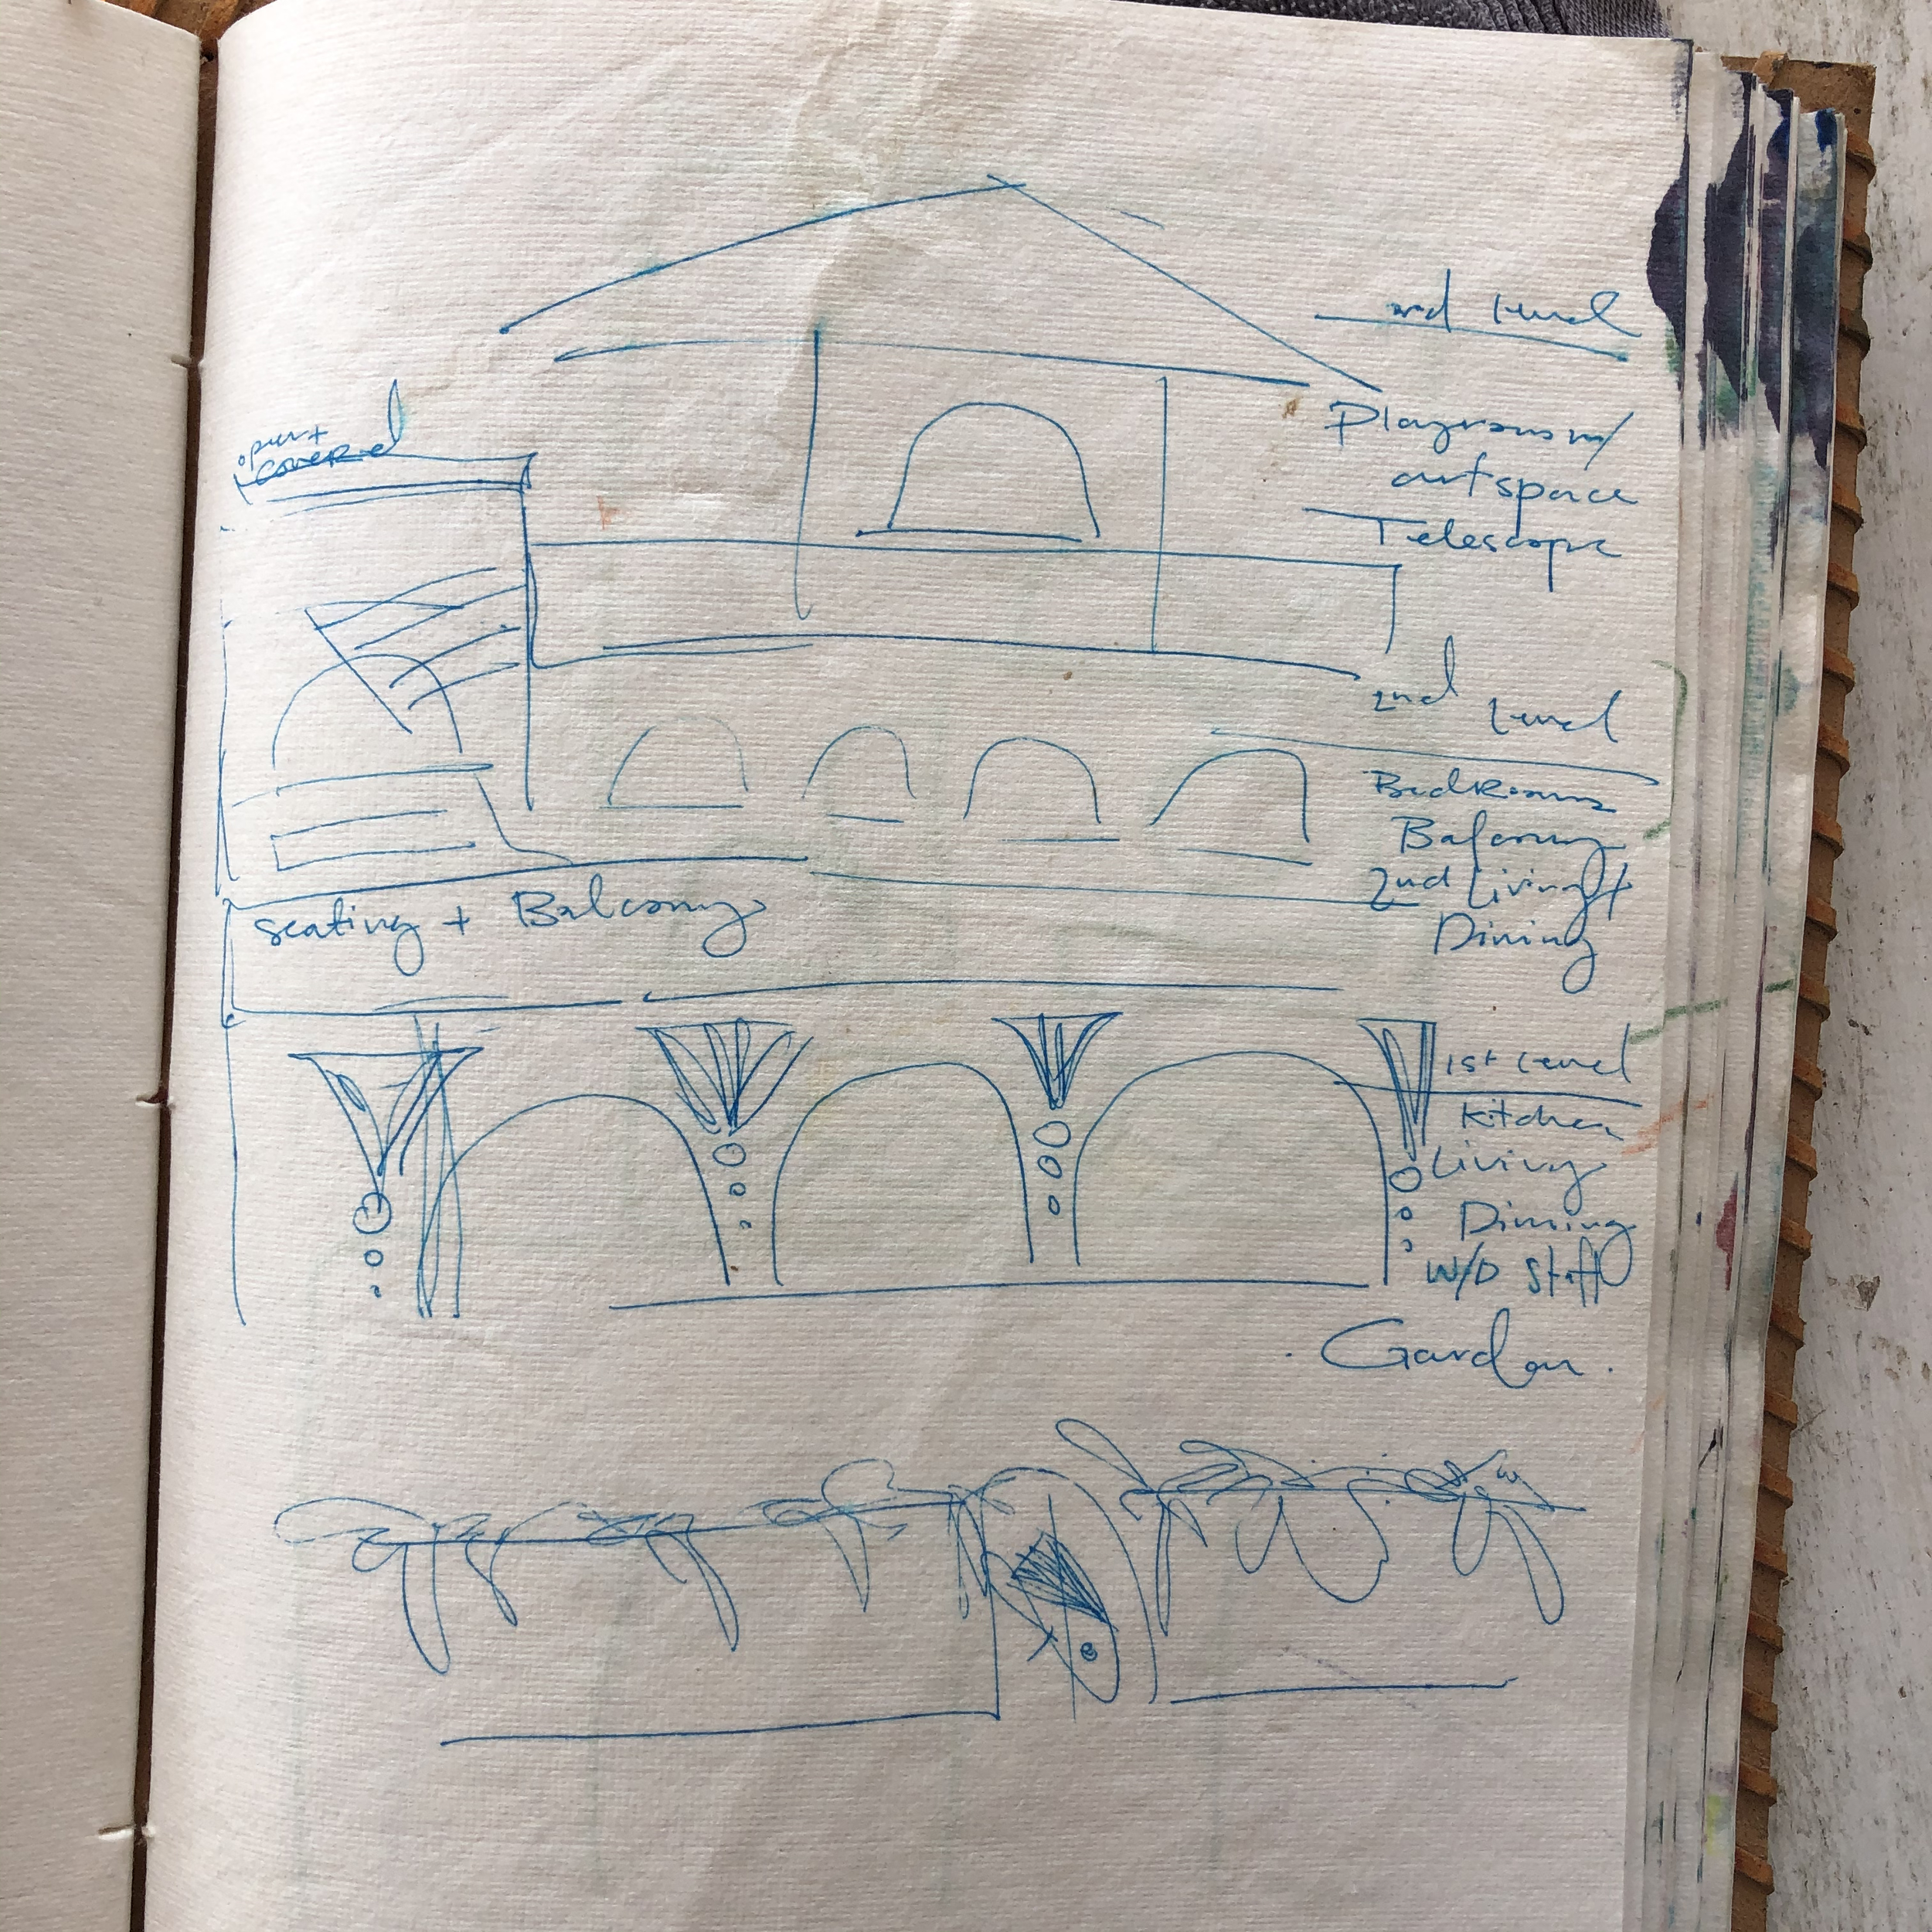 3rd Level
open +
covered
Playroom w/
art space
Telescope
2nd Level
Bedrooms
Balcony
2nd Living +
Dining
seating + Balcony
1st Level
Kitchen
Living
Dining
W/D Staff
Garden